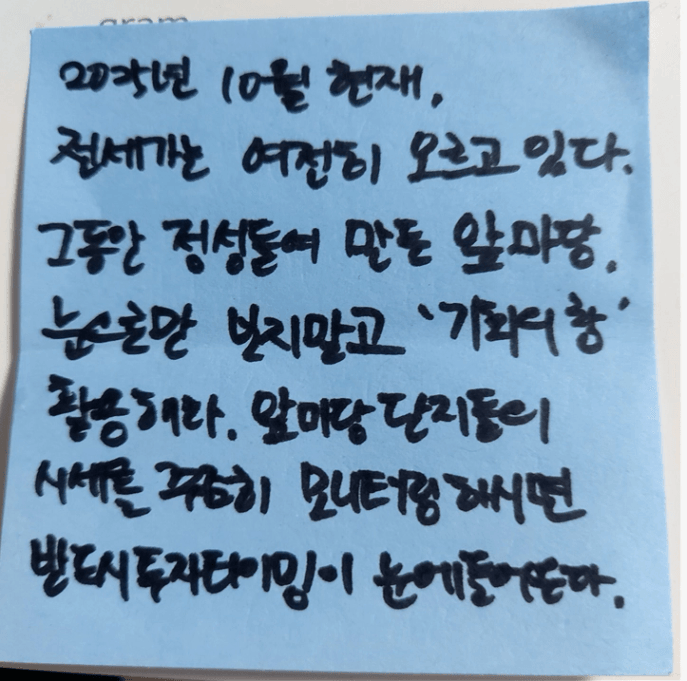 gram
2025년 10월 현재,
전세가는 여전히 오르고 있다.
그동안 정성들여 만든 앞마당,
눈으로만 보지말고 '기회의 창'
활용해라. 앞마당 단지들의
시세를 꾸준히 모니터링 하시면
반드시 투자타이밍이 눈에 들어온다.